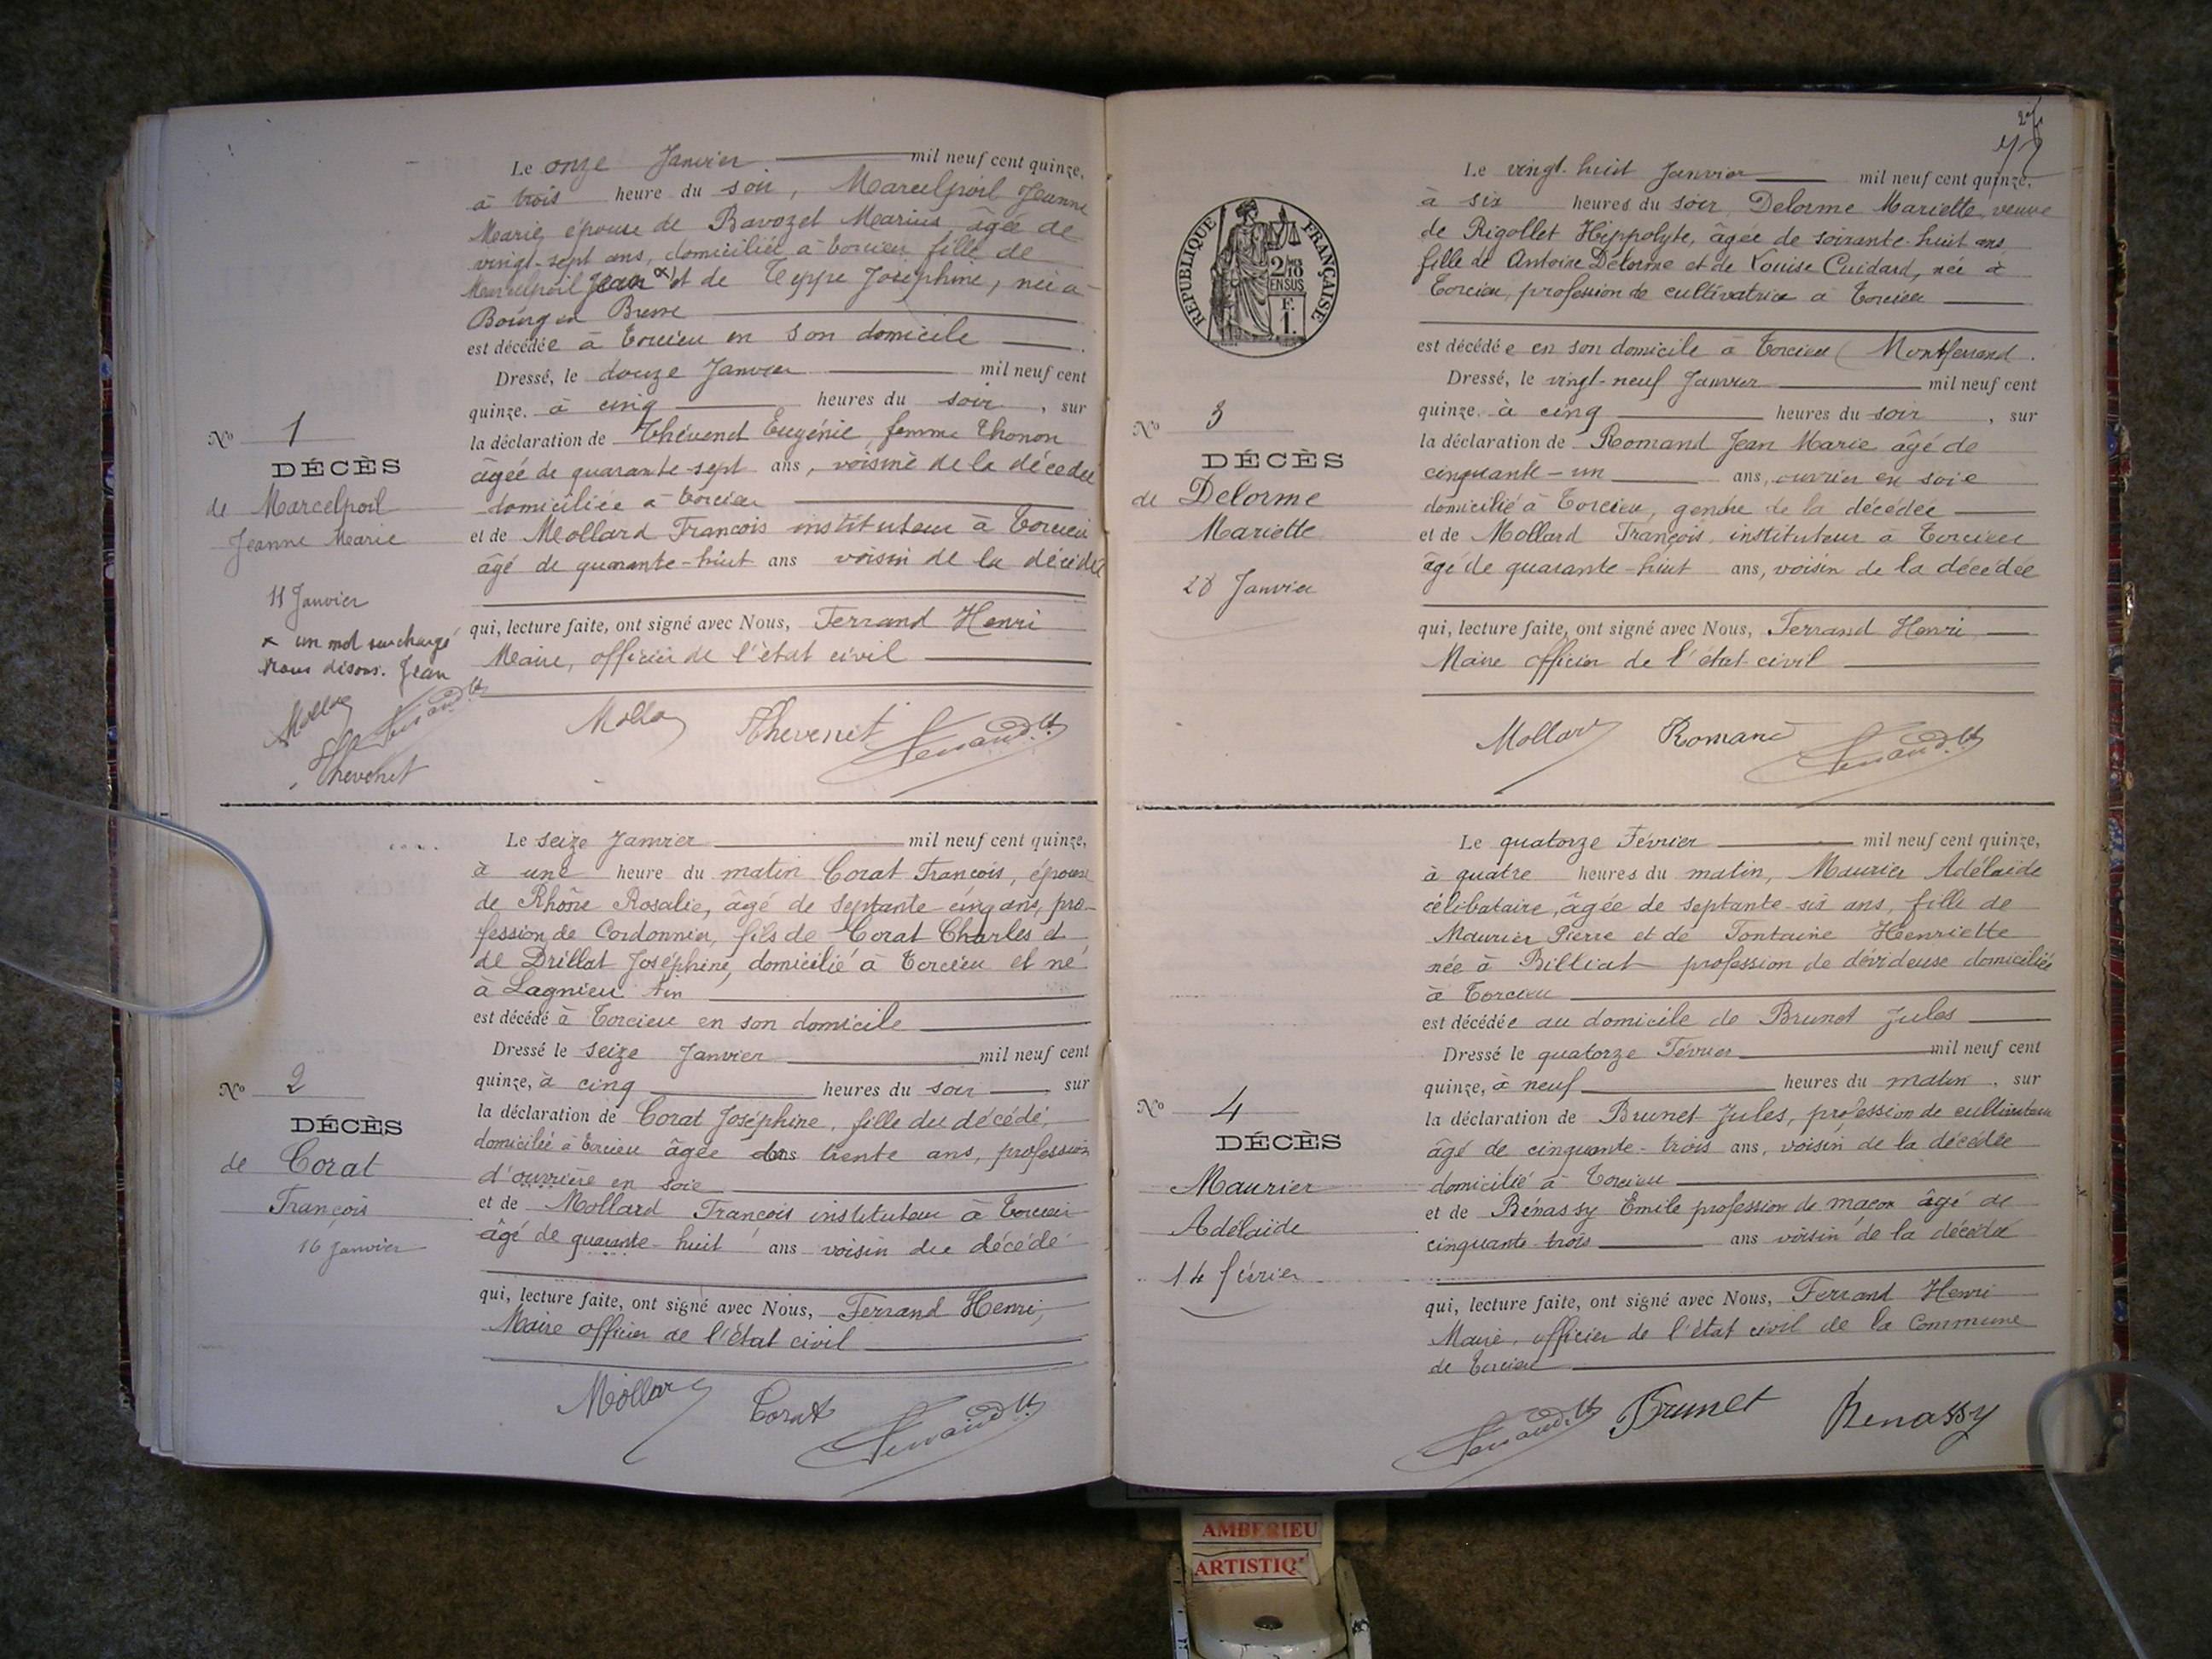 Le onze Janvier mil neuf cent quinze,
à trois heure du soir, Marcelpoil Jeanne
Marie, épouse de Bavozet Marius âgée de
vingt-sept ans, domiciliée à Torcieu fille de
Marcelpoil Jean et de Teppe Joséphine, née à
Bourg en Bresse
est décédée à Torcieu en son domicile
Dressé, le douze Janvier mil neuf cent
quinze, à cinq heures du soir, sur
la déclaration de Thévenet Eugénie, femme Thonon
âgée de quarante-sept ans, voisine de la décédée
domiciliée à Torcieu
et de Mollard François instituteur à Torcieu
âgé de quarante-huit ans voisin de la décédée
qui, lecture faite, ont signé avec Nous, Ferrand Henri
Maire, officier de l'état civil
Nº 1
DÉCÈS
de Marcelpoil
Jeanne Marie
11 Janvier
x un mot surchargé
Nous disons. Jean
Mollard
Ferrand H
Thevenet
Mollard Thevenet Ferrand H
Le seize Janvier mil neuf cent quinze,
à une heure du matin Corat François, époux
de Rhône Rosalie, âgé de septante-cinq ans, pro-
fession de Cordonnier, fils de Corat Charles et
de Drillat Joséphine, domicilié à Torcieu et né
à Lagnieu Ain
est décédé à Torcieu en son domicile
Dressé le seize Janvier mil neuf cent
quinze, à cinq heures du soir sur
la déclaration de Corat Joséphine, fille du décédé,
domiciliée à Torcieu âgée de trente ans, profession
d'ouvrière en soie
et de Mollard François instituteur à Torcieu
âgé de quarante-huit ans voisin du décédé
qui, lecture faite, ont signé avec Nous, Ferrand Henri,
Maire officier de l'état civil
Nº 2
DÉCÈS
de Corat
François
16 Janvier
Mollard Corat Ferrand H
Le vingt-huit Janvier mil neuf cent quinze,
à six heures du soir Delorme Mariette, veuve
de Rigollet Hippolyte, âgée de soixante-huit ans
fille de Antoine Delorme et de Louise Cuidard, née à
Torcieu, profession de cultivatrice à Torcieu
est décédée en son domicile à Torcieu (Montferrand.
Dressé, le vingt-neuf Janvier mil neuf cent
quinze, à cinq heures du soir, sur
la déclaration de Romand Jean Marie âgé de
cinquante-un ans, ouvrier en soie
domicilié à Torcieu, gendre de la décédée
et de Mollard François, instituteur à Torcieu
âgé de quarante-huit ans, voisin de la décédée
qui, lecture faite, ont signé avec Nous, Ferrand Henri
Maire officier de l'état civil
REPUBLIQUE FRANÇAISE
2/10
EN SUS
F.
1.
Nº 3
DÉCÈS
de Delorme
Mariette
28 Janvier
Mollard Romand Ferrand H
Le quatorze Février mil neuf cent quinze,
à quatre heures du matin, Maurier Adélaide
célibataire, âgée de septante-six ans, fille de
Maurier Pierre et de Fontaine Henriette
née à Billiat profession de dévideuse domiciliée
à Torcieu
est décédée au domicile de Brunet Jules
Dressé le quatorze Février mil neuf cent
quinze, à neuf heures du matin, sur
la déclaration de Brunet Jules, profession de cultivateur
âgé de cinquante-trois ans, voisin de la décédée
domicilié à Torcieu
et de Bénassy Emile profession de maçon âgé de
cinquante-trois ans voisin de la décédée
qui, lecture faite, ont signé avec Nous, Ferrand Henri
Maire, officier de l'état civil de la Commune
de Torcieu
Nº 4
DÉCÈS
Maurier
Adélaide
14 février
Ferrand H Brunet Benassy
AMBERIEU
ARTISTIQ